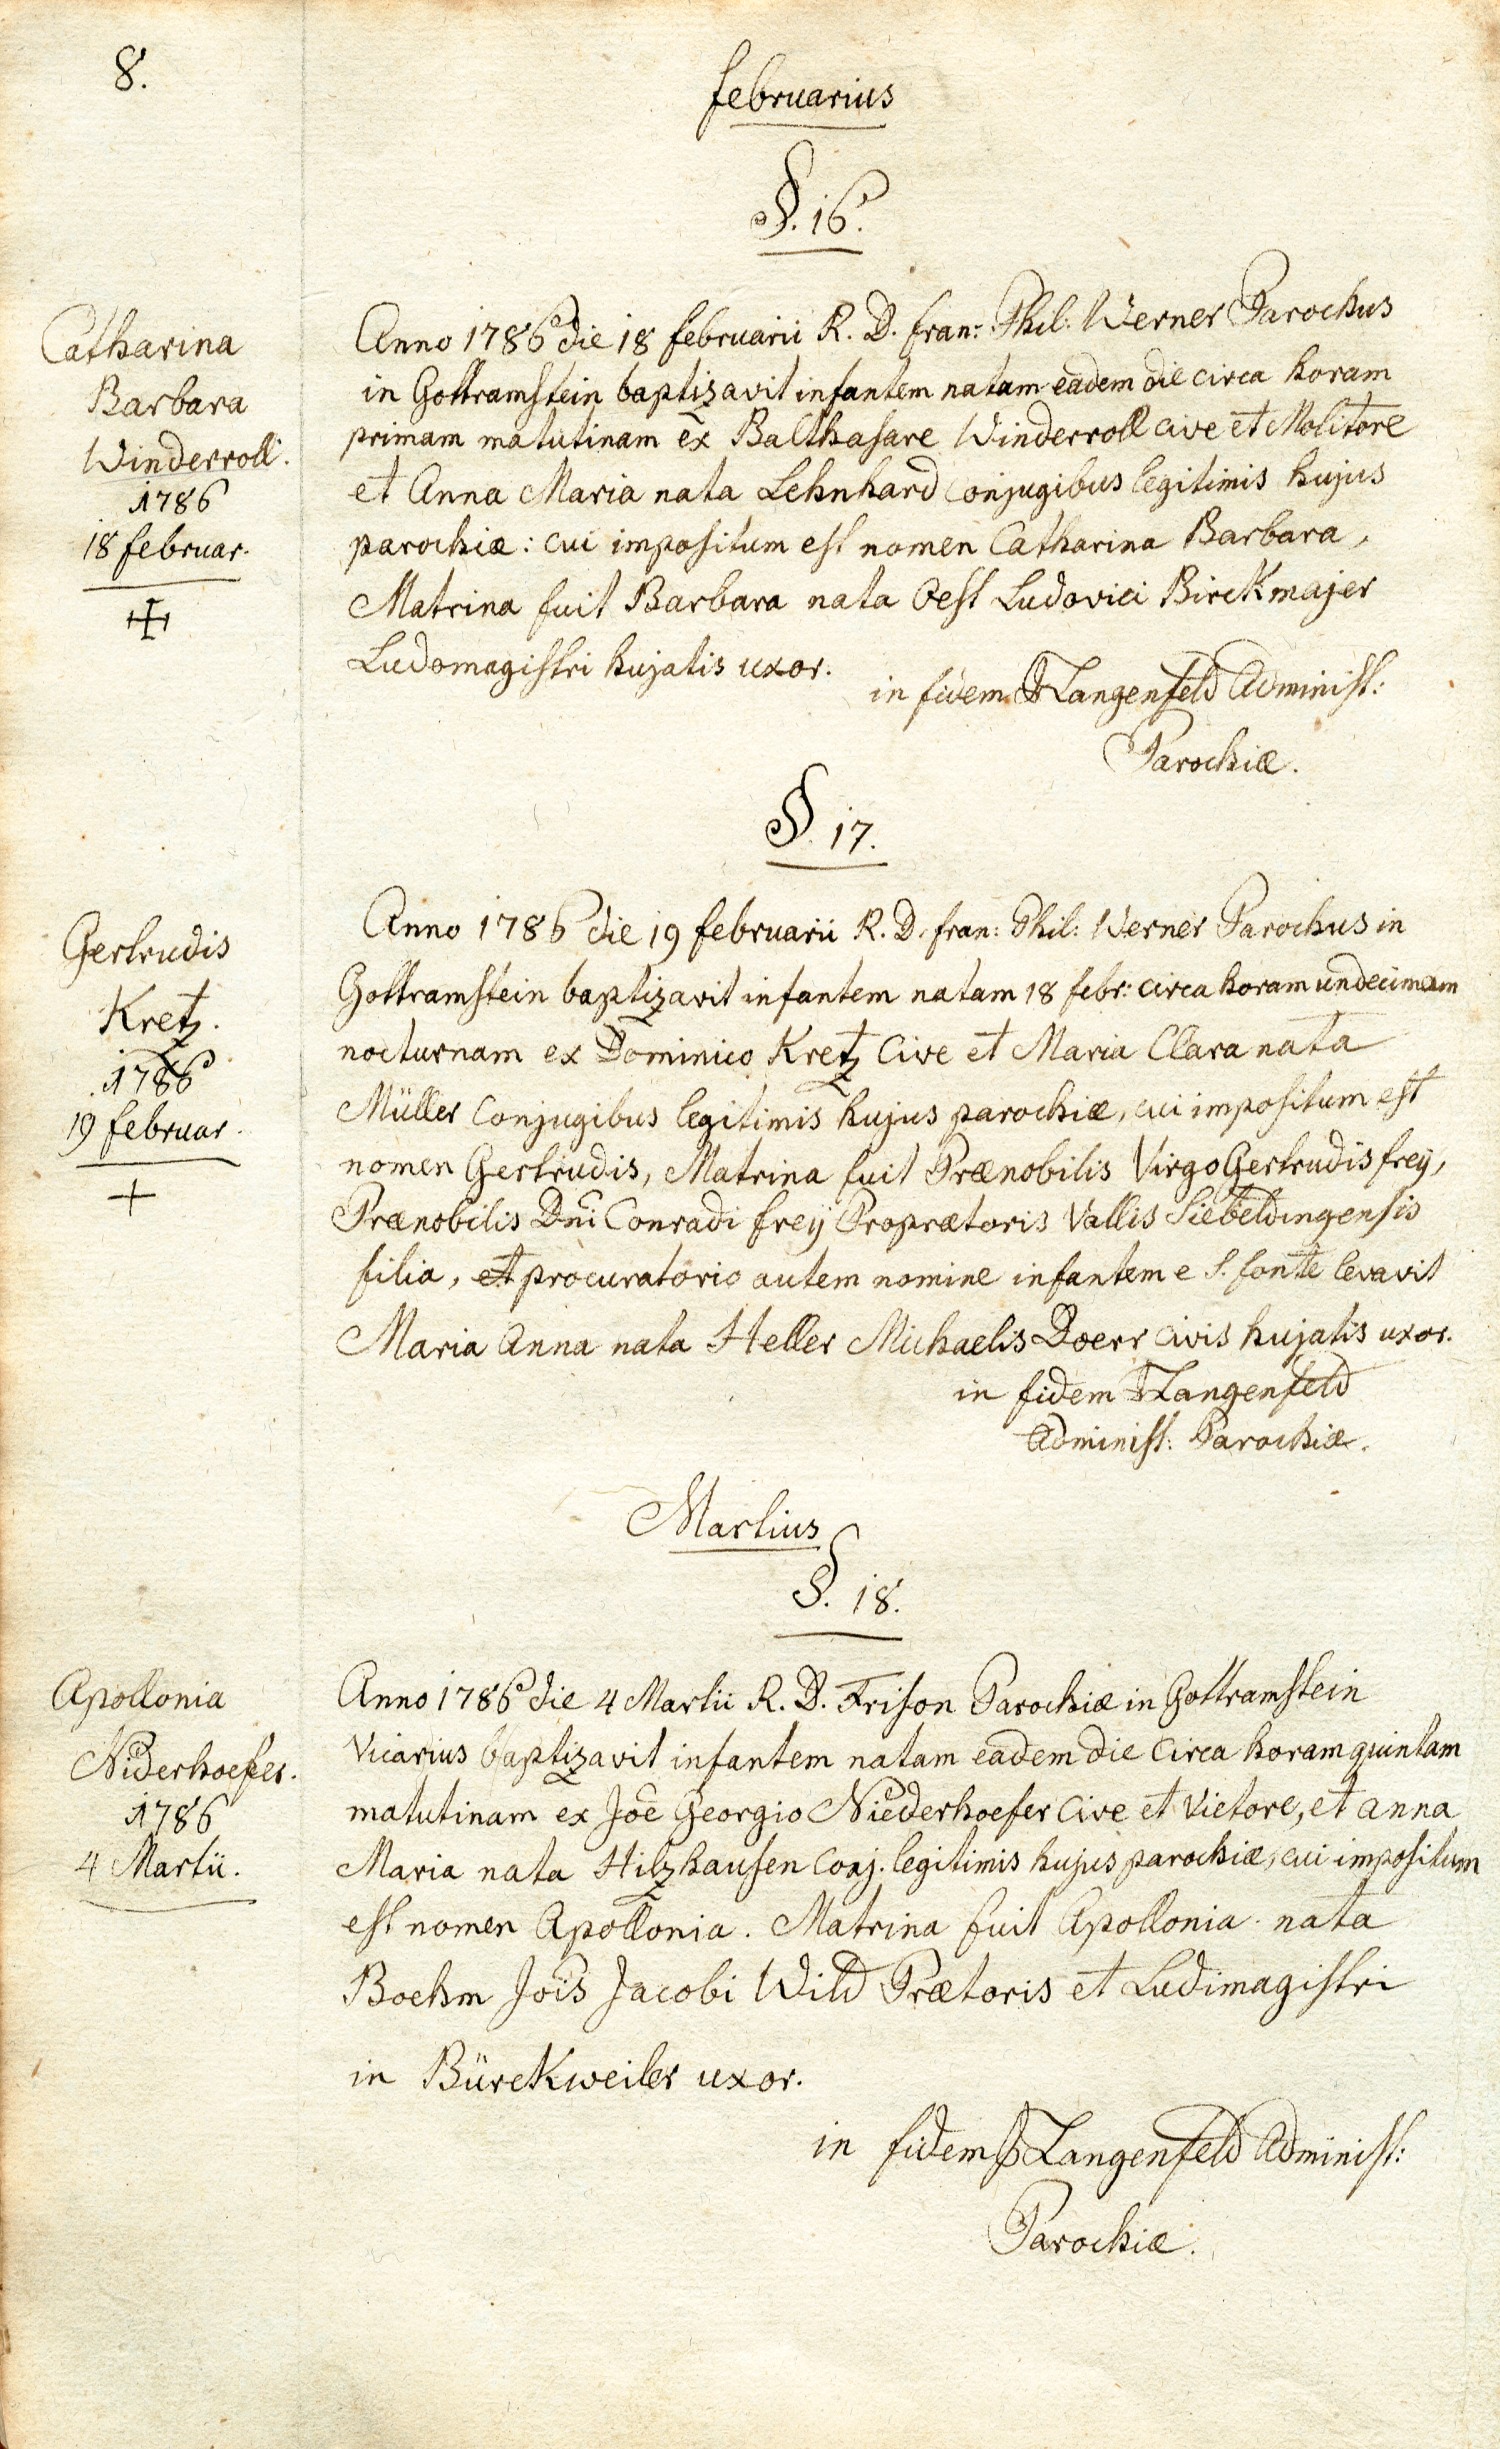 8.
februarius
§. 16.
Catharina
Barbara
Winderroll.
1786
18 februar.
Anno 1786 die 18 februarii R. D. fran: Phil: Werner Parochus
in Gottramstein baptizavit infantem natam eadem die circa horam
primam matutinam ex Balthasare Winderroll cive et Molitore
et Anna Maria nata Lehnhard conjugibus legitimis hujus
parochiæ: cui impositum est nomen Catharina Barbara,
Matrina fuit Barbara nata Oest Ludovici Birckmajer
Ludomagistri hujatis uxor.
in fidem Langenfeld Administ:
Parochiæ.
§ 17.
Gertrudis
Kretz.
1786
19 februar.
Anno 1786 die 19 februarii R. D. fran: Phil: Werner Parochus in
Gottramstein baptizavit infantem natam 18 febr: circa horam undecimam
nocturnam ex Dominico Kretz Cive et Maria Clara nata
Müller conjugibus legitimis hujus parochiæ, cui impositum est
nomen Gertrudis, Matrina fuit Prænobilis Virgo Gertrudis freÿ,
Prænobilis Dni Conradi freÿ Proprætoris Vallis Siebeldingensis
filia, et procuratorio autem nomine infantem e S. fonte levavit
Maria Anna nata Heller Michaelis Doerr civis hujatis uxor.
in fidem Langenfeld
Administ: Parochiæ.
Martius
§. 18.
Apollonia
Niderhoefer.
1786
4 Martii.
Anno 1786 die 4 Martii R. D. Frison Parochiæ in Gottramstein
Vicarius baptizavit infantem natam eadem die circa horam quintam
matutinam ex Joe Georgio Niederhoefer Cive et Vietore, et anna
Maria nata Hilzhausen Conj. legitimis hujus parochiæ, cui impositum
est nomen Apollonia. Matrina fuit Apollonia nata
Boehm Jois Jacobi Wild Prætoris et Ludimagistri
in Bürckweiler uxor.
in fidem Langenfeld Administ:
Parochiæ.